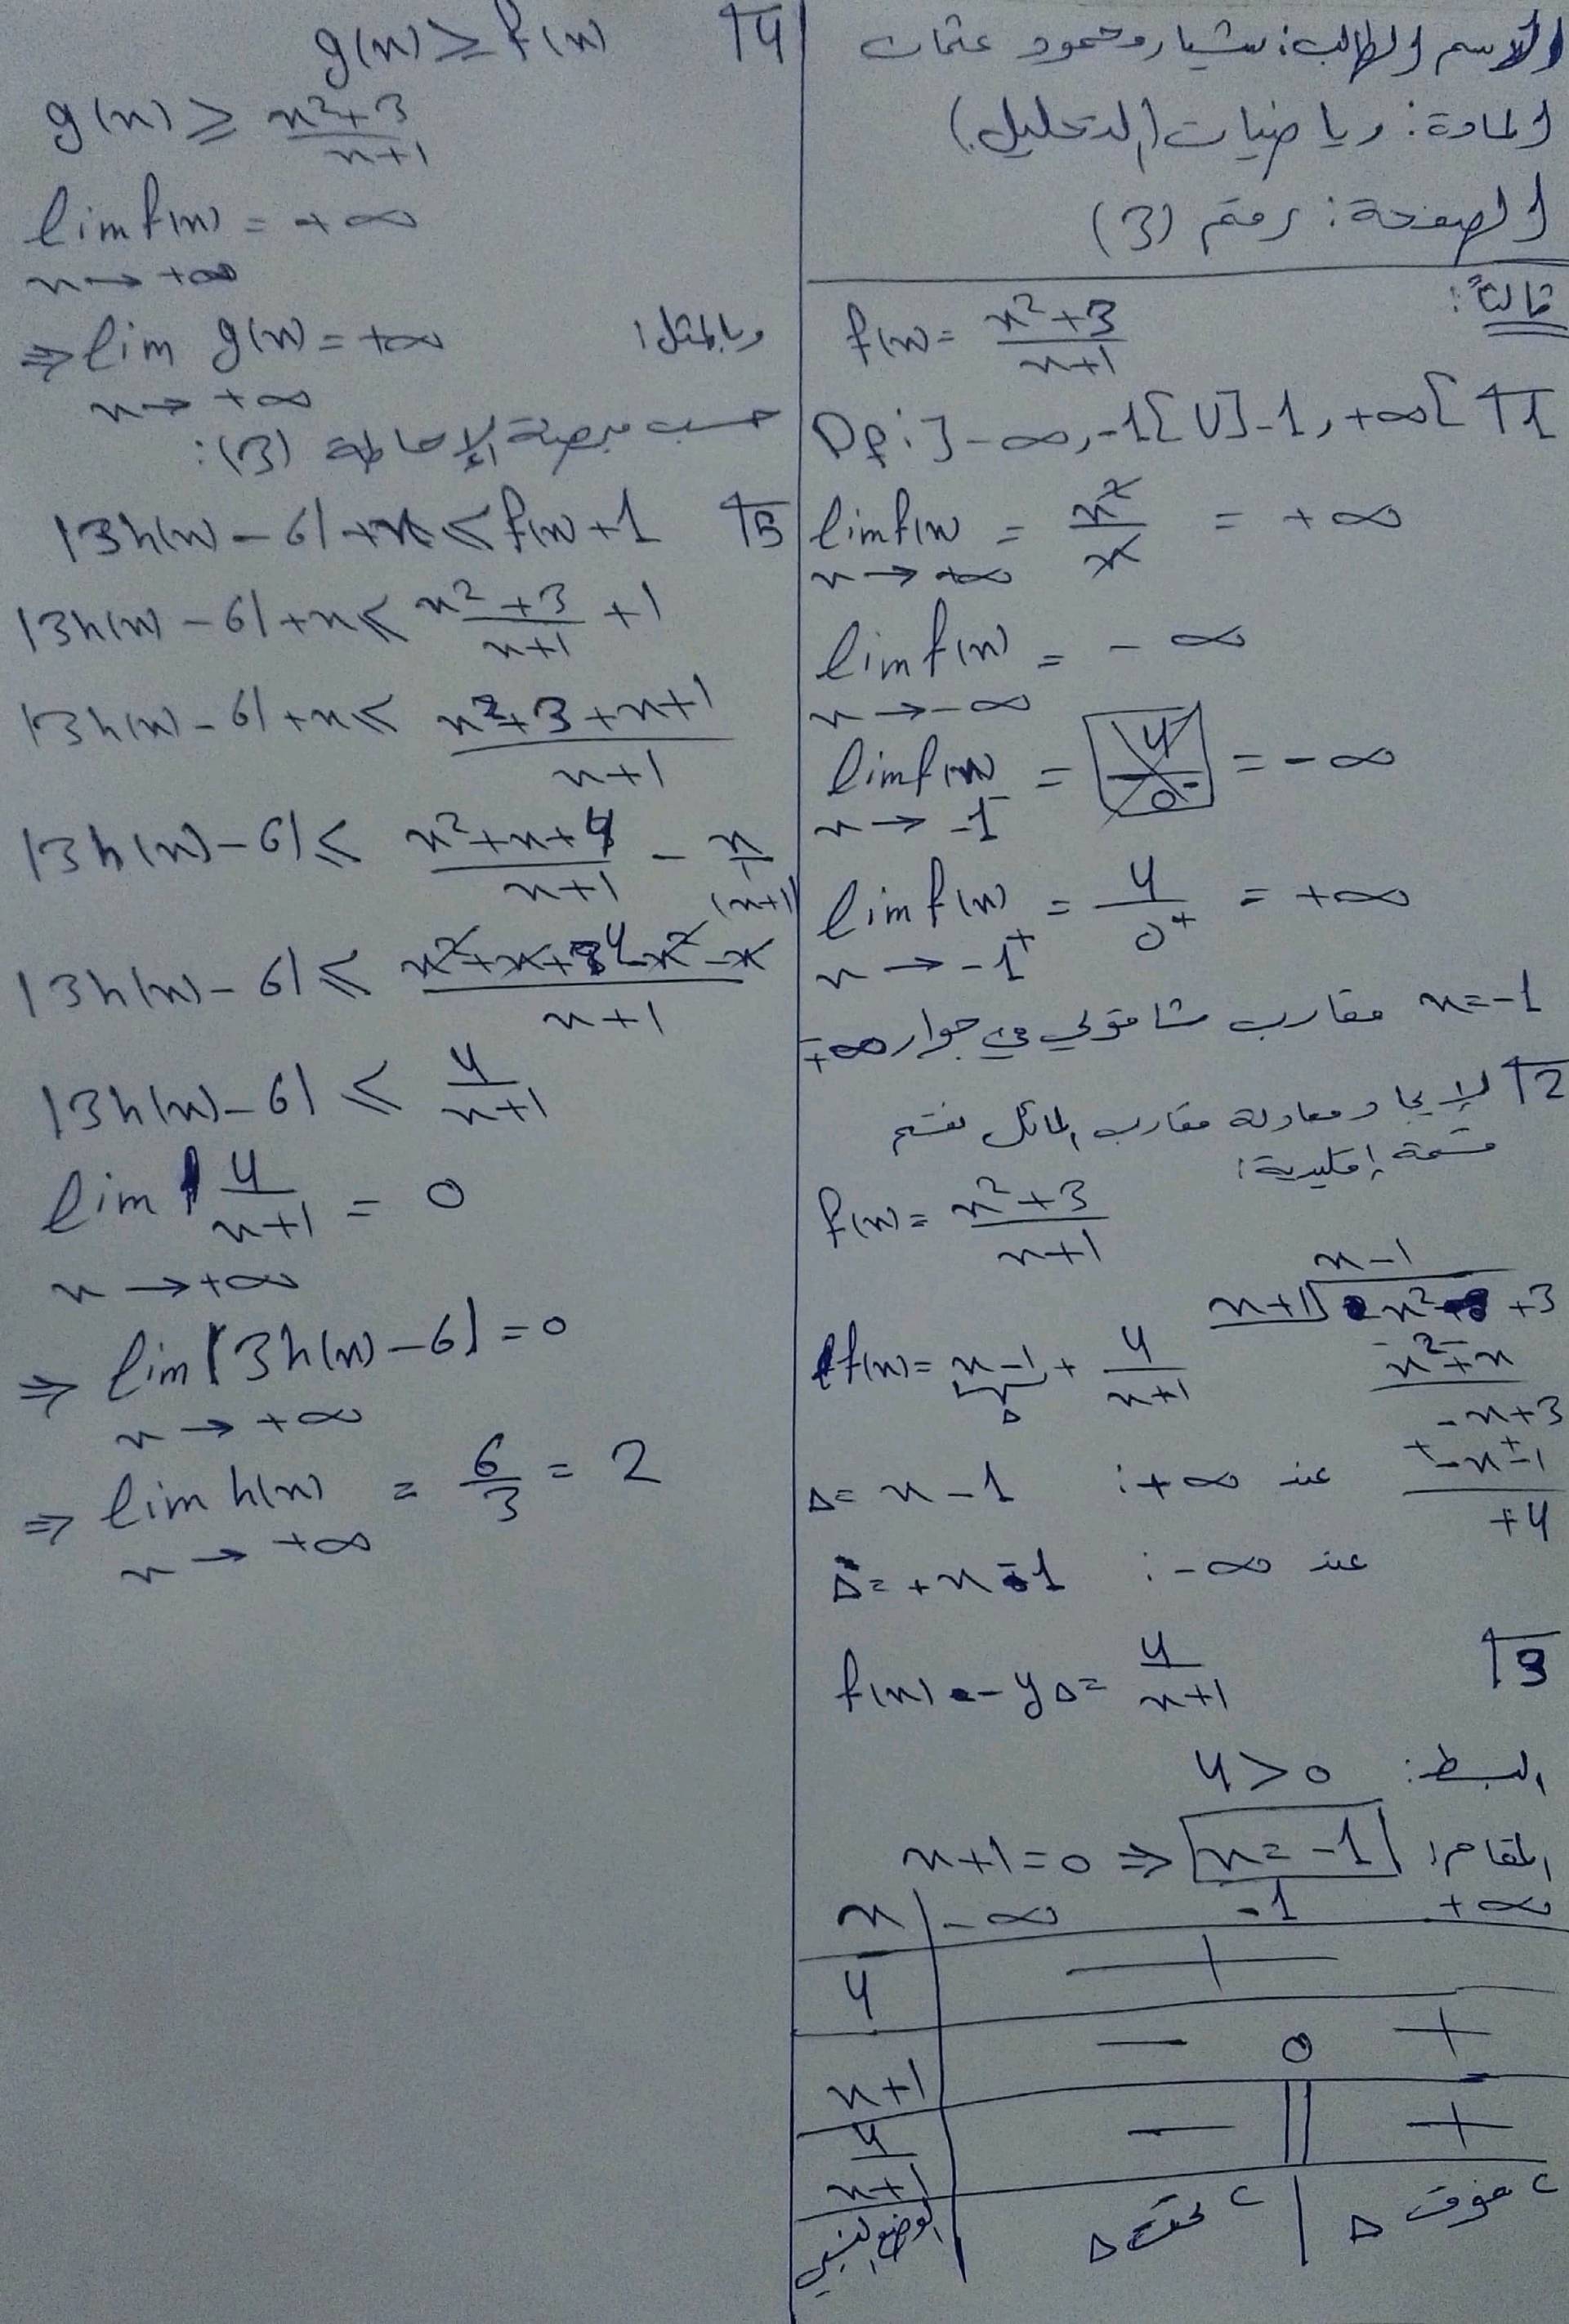 الاسم الطالب: بشار محمود عثمان
المادة: رياضيات (التحليل)
الصفحة: رقم (3)
ثالثاً:
f(x) = \frac{x²+3}{x+1}
1 Df: ]-∞, -1[ U ]-1, +∞[
lim f(x) = \frac{x²}{x} = +∞
x → +∞
lim f(x) = -∞
x → -∞
lim f(x) = \frac{4}{0⁻} = -∞
x → -1⁻
lim f(x) = \frac{4}{0⁺} = +∞
x → -1⁺
x = -1 مقارب شاقولي في جوار ±∞
2 لإيجاد معادلة مقارب المائل نقسم
قسمة إقليدية:
f(x) = \frac{x²+3}{x+1}
x-1
x+1 x² +3
x²+x
-x+3
-x-1
+4
f(x) = x-1 + \frac{4}{x+1}
Δ
Δ = x - 1 عند +∞:
Δ = +x - 1 عند -∞:
3 f(x) - yΔ = \frac{4}{x+1}
البسط: 4 > 0
المقام: x+1 = 0 ⇒ x = -1
x -∞ -1 +∞
4 +
x+1 - 0 +
\frac{4}{x+1} - || +
الوضع النسبي C تحت Δ | C فوق Δ
4 g(x) ≥ f(x)
g(x) ≥ \frac{x²+3}{x+1}
lim f(x) = +∞
x → +∞
⇒ lim g(x) = +∞
x → +∞
حسب مبرهنة الإحاطة (3):
5 |3h(x) - 6| + x ≤ f(x) + 1
|3h(x) - 6| + x ≤ \frac{x²+3}{x+1} + 1
|3h(x) - 6| + x ≤ \frac{x²+3+x+1}{x+1}
|3h(x) - 6| ≤ \frac{x²+x+4}{x+1} - \frac{x}{1}
(x+1)
|3h(x) - 6| ≤ \frac{x²+x+4-x²-x}{x+1}
|3h(x) - 6| ≤ \frac{4}{x+1}
lim \frac{4}{x+1} = 0
x → +∞
⇒ lim |3h(x) - 6| = 0
x → +∞
⇒ lim h(x) = \frac{6}{3} = 2
x → +∞